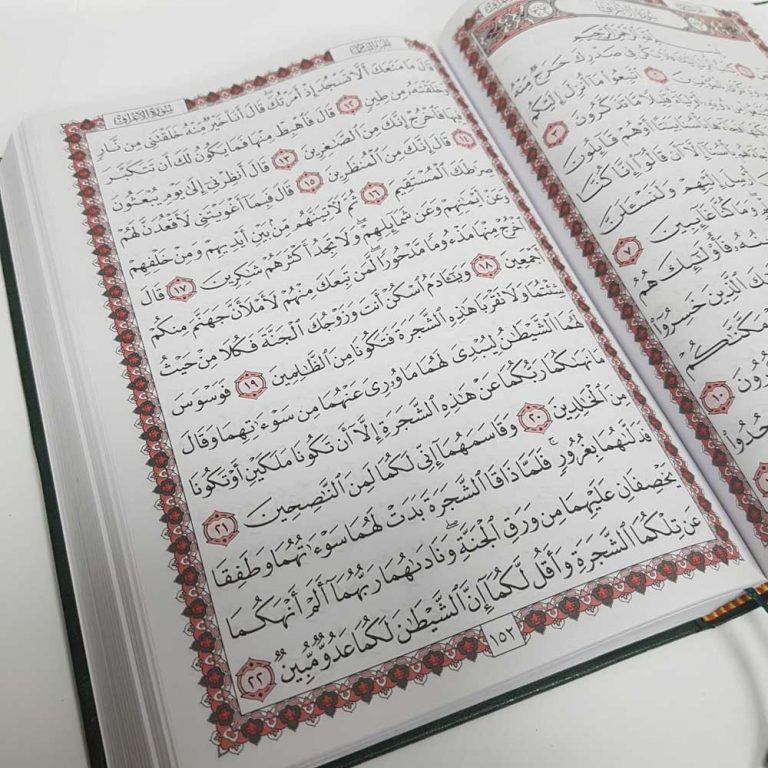 سُورَةُ الأَعْرَافِ
قَالَ مَا مَنَعَكَ أَلَّا تَسْجُدَ إِذْ أَمَرْتُكَ ۖ قَالَ أَنَا۠ خَيْرٌ مِّنْهُ خَلَقْتَنِى مِن نَّارٍ
وَخَلَقْتَهُۥ مِن طِينٍ ١٢ قَالَ فَٱهْبِطْ مِنْهَا فَمَا يَكُونُ لَكَ أَن تَتَكَبَّرَ
فِيهَا فَٱخْرُجْ إِنَّكَ مِنَ ٱلصَّٰغِرِينَ ١٣ قَالَ أَنظِرْنِىٓ إِلَىٰ يَوْمِ يُبْعَثُونَ
١٤ قَالَ إِنَّكَ مِنَ ٱلْمُنظَرِينَ ١٥ قَالَ فَبِمَآ أَغْوَيْتَنِى لَأَقْعُدَنَّ لَهُمْ
صِرَٰطَكَ ٱلْمُسْتَقِيمَ ١٦ ثُمَّ لَءَاتِيَنَّهُم مِّنۢ بَيْنِ أَيْدِيهِمْ وَمِنْ خَلْفِهِمْ
وَعَنْ أَيْمَٰنِهِمْ وَعَن شَمَآئِلِهِمْ ۖ وَلَا تَجِدُ أَكْثَرَهُمْ شَٰكِرِينَ ١٧ قَالَ
ٱخْرُجْ مِنْهَا مَذْءُومًا مَّدْحُورًا ۖ لَّمَن تَبِعَكَ مِنْهُمْ لَأَمْلَأَنَّ جَهَنَّمَ مِنكُمْ
أَجْمَعِينَ ١٨ وَيَٰٓـَٔادَمُ ٱسْكُنْ أَنتَ وَزَوْجُكَ ٱلْجَنَّةَ فَكُلَا مِنْ حَيْثُ
شِئْتُمَا وَلَا تَقْرَبَا هَٰذِهِ ٱلشَّجَرَةَ فَتَكُونَا مِنَ ٱلظَّٰلِمِينَ ١٩ فَوَسْوَسَ
لَهُمَا ٱلشَّيْطَٰنُ لِيُبْدِىَ لَهُمَا مَا وُۥرِىَ عَنْهُمَا مِن سَوْءَٰتِهِمَا وَقَالَ
مَا نَهَىٰكُمَا رَبُّكُمَا عَنْ هَٰذِهِ ٱلشَّجَرَةِ إِلَّآ أَن تَكُونَا مَلَكَيْنِ أَوْ تَكُونَا
مِنَ ٱلْخَٰلِدِينَ ٢٠ وَقَاسَمَهُمَآ إِنِّى لَكُمَا لَمِنَ ٱلنَّٰصِحِينَ ٢١
فَدَلَّىٰهُمَا بِغُرُورٍ ۚ فَلَمَّا ذَاقَا ٱلشَّجَرَةَ بَدَتْ لَهُمَا سَوْءَٰتُهُمَا وَطَفِقَا
يَخْصِفَانِ عَلَيْهِمَا مِن وَرَقِ ٱلْجَنَّةِ ۖ وَنَادَىٰهُمَا رَبُّهُمَآ أَلَمْ أَنْهَكُمَا
عَن تِلْكُمَا ٱلشَّجَرَةِ وَأَقُل لَّكُمَآ إِنَّ ٱلشَّيْطَٰنَ لَكُمَا عَدُوٌّ مُّبِينٌ ٢٢
١٥٢
ٱتَّبِعُوا۟ مَآ أُنزِلَ إِلَيْكُم
قَلِيلًا مَّا تَذَكَّرُونَ ٣
أَوْ هُمْ قَآئِلُونَ
إِلَّآ أَن قَالُوٓا۟ إِنَّا كُنَّا
إِلَيْهِمْ وَلَنَسْـَٔلَنَّ
وَمَا كُنَّا غَآئِبِينَ ٧
فَأُو۟لَٰٓئِكَ هُمُ
ٱلَّذِينَ خَسِرُوٓا۟
مَكَّنَّٰكُمْ
١٠